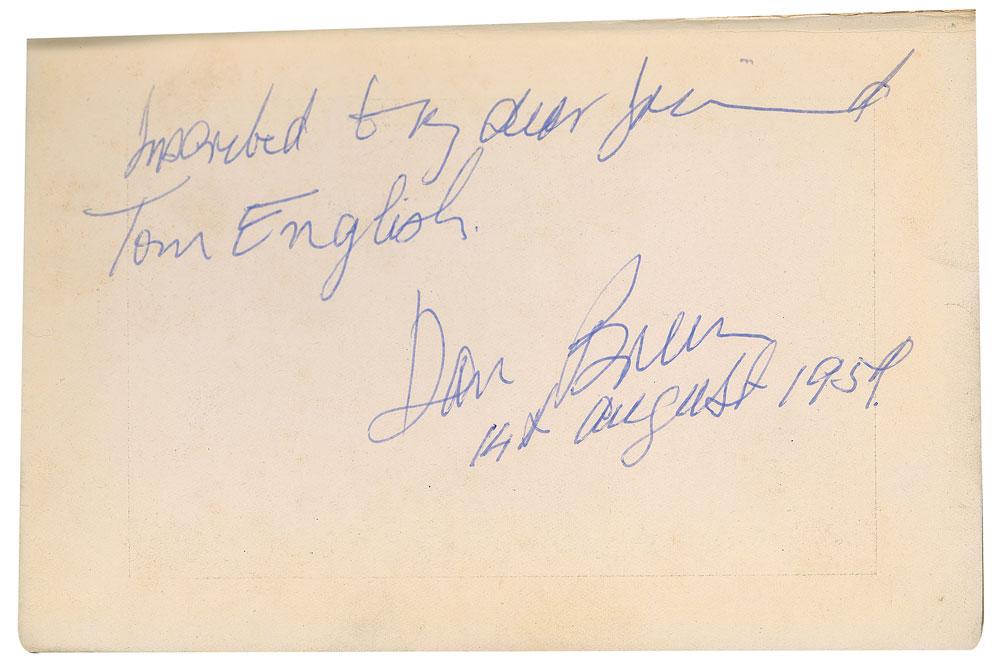 Inscribed to my dear friend
Tom English.
Dan Breen
14th august 1959.